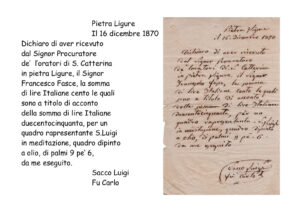 Pietra Ligure
Il 16 dicembre 1870
Dichiaro di aver ricevuto
dal Signor Procuratore
de´ l´oratori di S. Catterina
in pietra Ligure, il Signor
Francesco Fasce, la somma
di lire Italiane cento le quali
sono a titolo di acconto
della somma di lire Italiane
duecentocinquanta, per un
quadro rapresentante S.Luigi
in meditazione, quadro dipinto
a olio, di palmi 9 pe´ 6,
da me eseguito.
Sacco Luigi
Fu Carlo
Pietra Ligure
il 16 Dicembre 1870
Dichiaro di aver ricevuto
dal signor procuratore
in pietra Ligure, il signor
Francesco Fasce, la somma
di lire Italiane cento le quali
sono a titolo di acconto
della somma di lire Italiane
duecentocinquanta, per un
quadro rapresentante S. Luigi
in meditazione, quadro dipinto
a olio, di palmi 9 pe' 6
da me eseguito
Sacco Luigi
fu Carlo